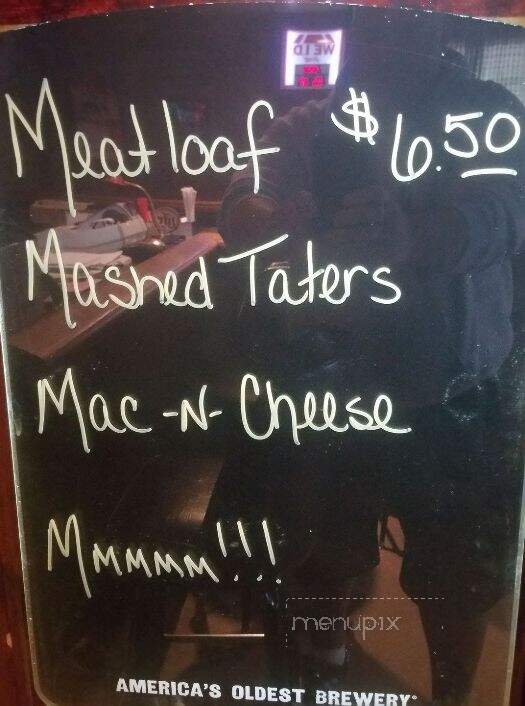 Meatloaf $6.50
Mashed Taters
Mac-N-Cheese
Mmmmm!!!
menupix
AMERICA'S OLDEST BREWERY